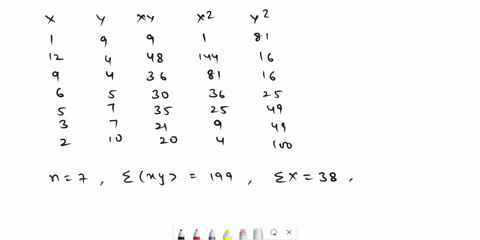 x y xy x² y²
1 9 9 1 81
12 4 48 144 16
9 4 36 81 16
6 5 30 36 25
5 7 35 25 49
3 7 21 9 49
2 10 20 4 100
n=7, Σ(xy) = 199, Σx = 38,